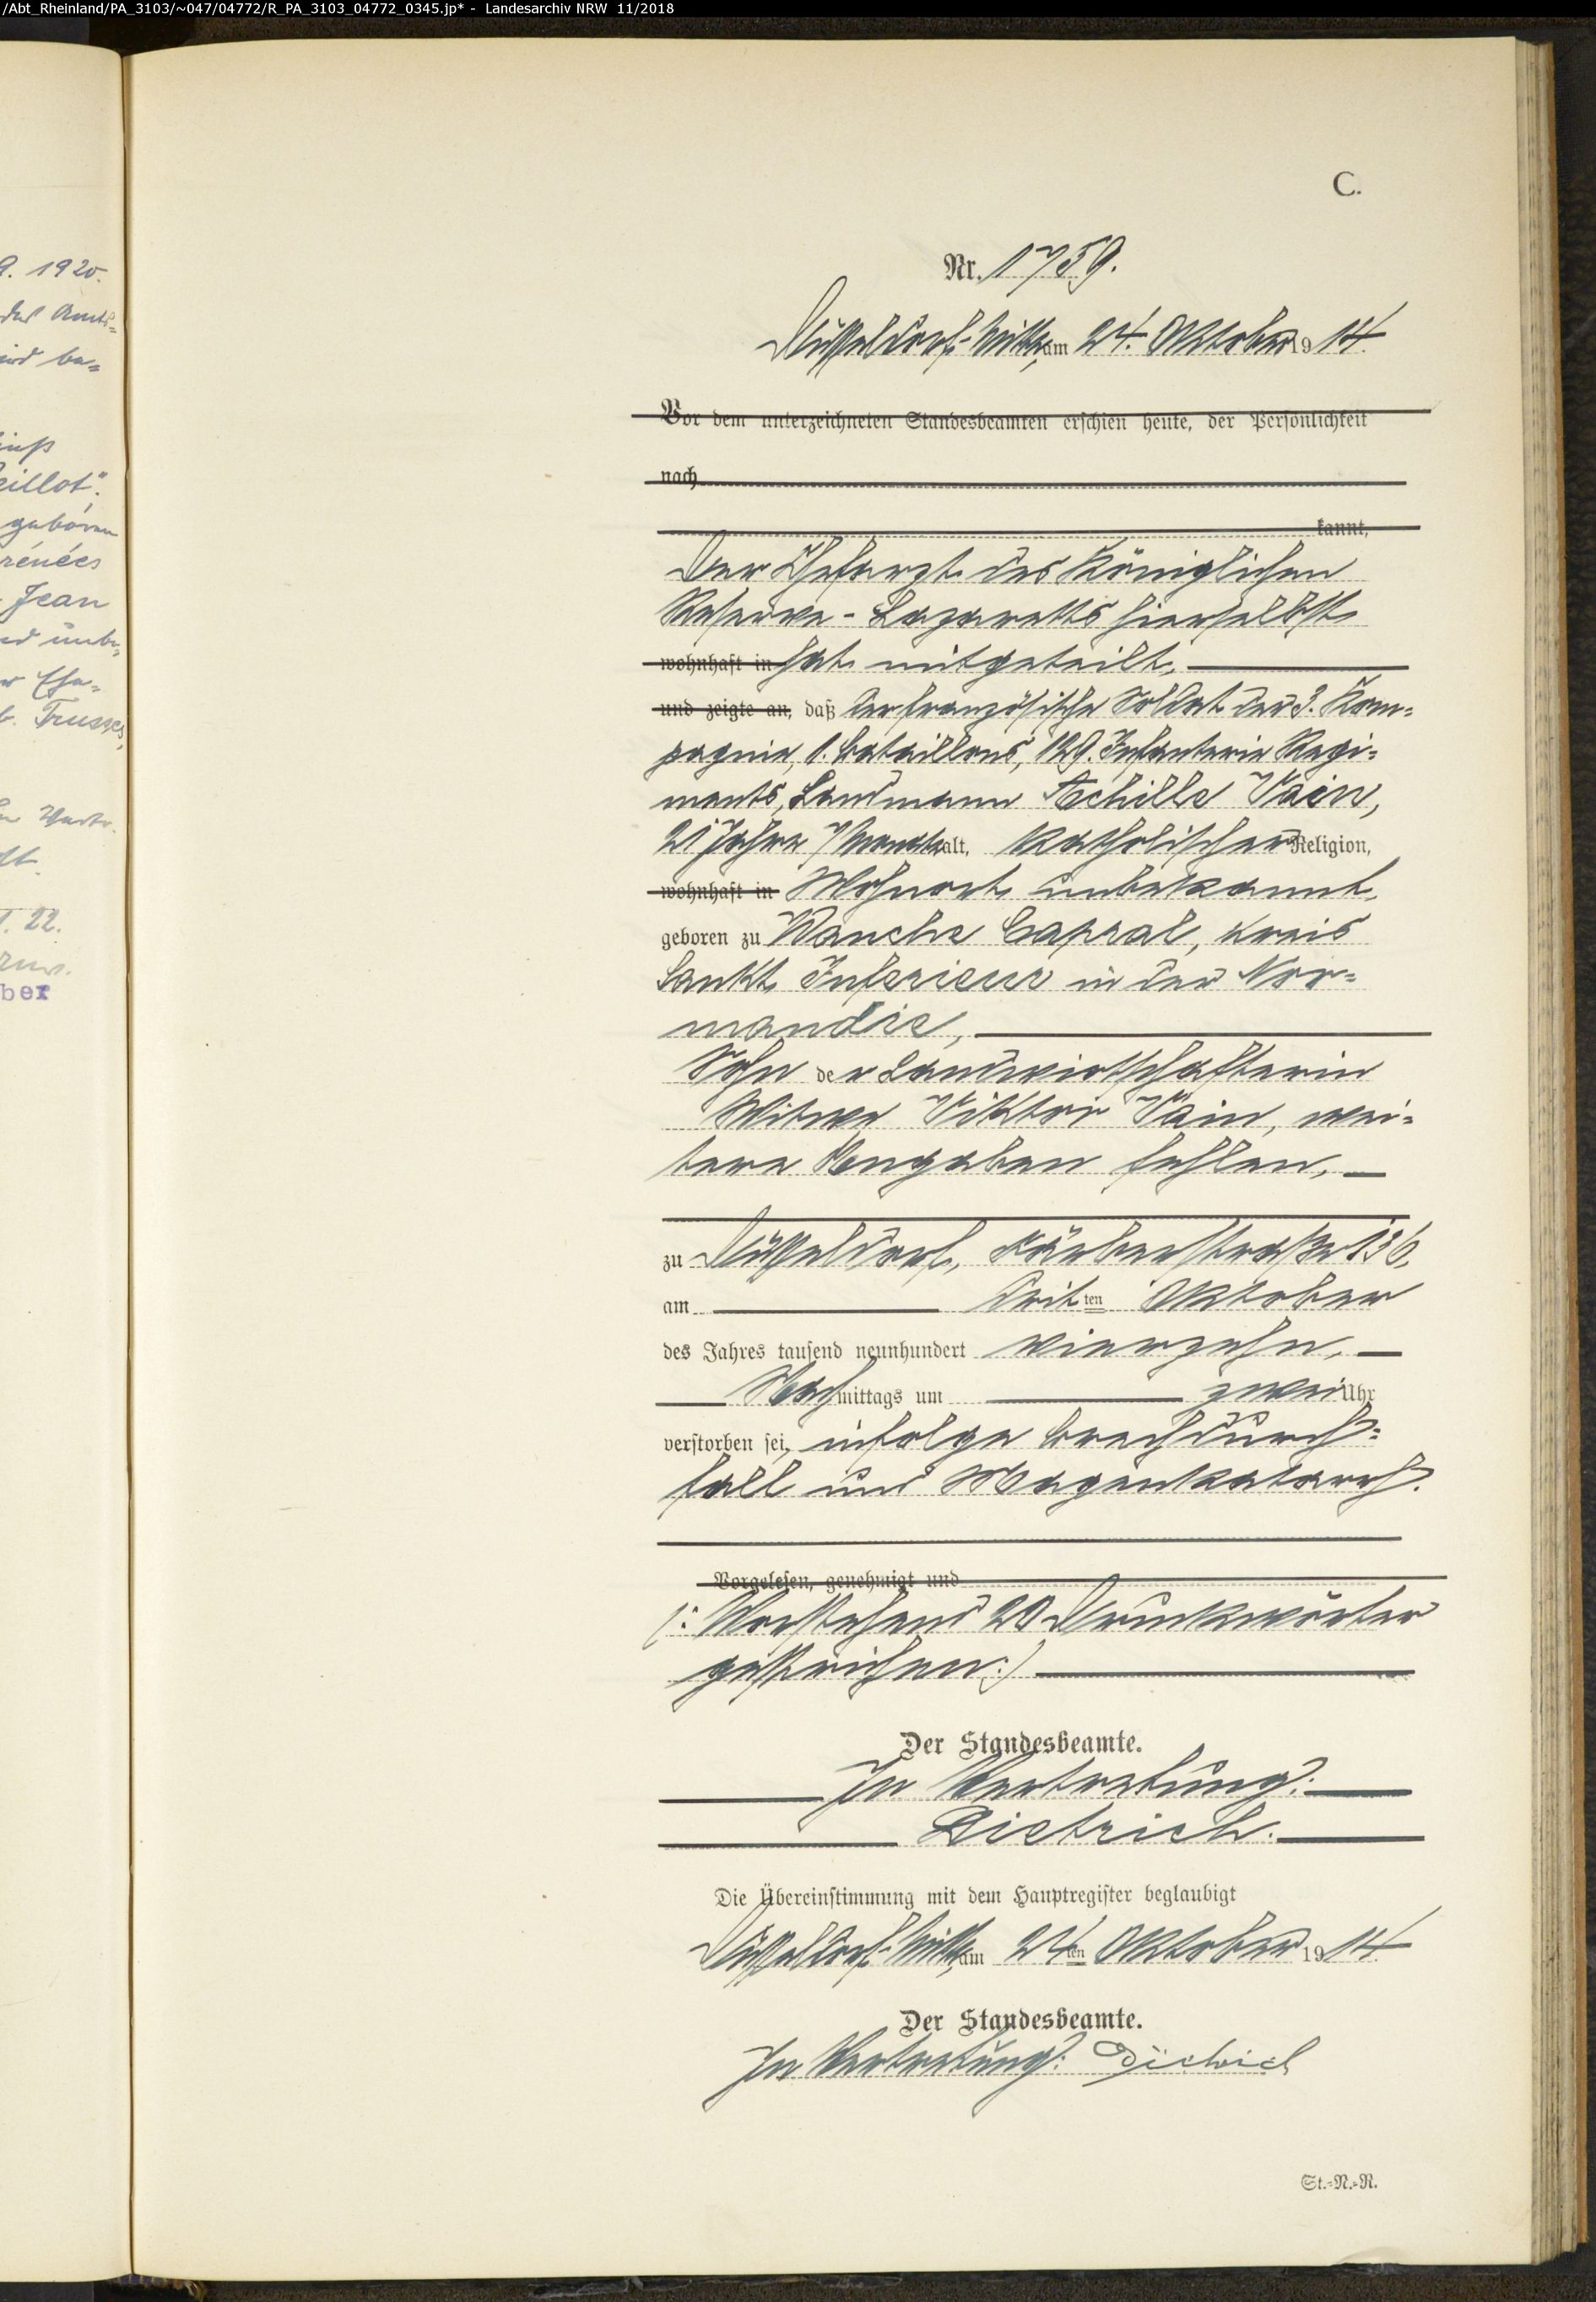 /Abt_Rheinland/PA_3103/~047/04772/R_PA_3103_04772_0345.jp* - Landesarchiv NRW 11/2018
9. 1920.
des Amts-
wird be-
eillot".
geboren
rénées
Jean
Trusses,
1. 22.
ber
C.
Nr. 1759.
Düsseldorf-Mitte, am 24. Oktober 1914.
Vor dem unterzeichneten Standesbeamten erschien heute, der Persönlichkeit
nach
kannt,
Der Chefarzt des Königlichen
Reserve-Lazaretts hierselbst
wohnhaft in hat mitgeteilt,
und zeigte an, daß der französische Soldat der 3. Kom-
pagnie, 1. Bataillons, 129. Infanterie Regi-
ments, Landmann Achille Vain,
21 Jahre 7 Monate alt, katholischer Religion,
wohnhaft in Wohnort unbekannt,
geboren zu Manche Capral, Kreis
Sankt Inferieur in der Nor-
mandie,
Sohn der Landwirtschafterin
Witwe Viktor Vain, wei-
tere Angaben fehlen,
zu Düsseldorf, Färberstraße 136,
am dritten Oktober
des Jahres tausend neunhundert vierzehn,
Nachmittags um zwei Uhr
verstorben sei, infolge Brechdurch-
fall und Magenkatarrh.
Vorgelesen, genehmigt und
(: Vorstehend 20 Druckwörter
gestrichen :)
Der Standesbeamte.
In Vertretung:
Dietrich.
Die Übereinstimmung mit dem Hauptregister beglaubigt
Düsseldorf-Mitte, am 24ten Oktober 1914.
Der Standesbeamte.
In Vertretung: Dietrich
St.-N.-R.